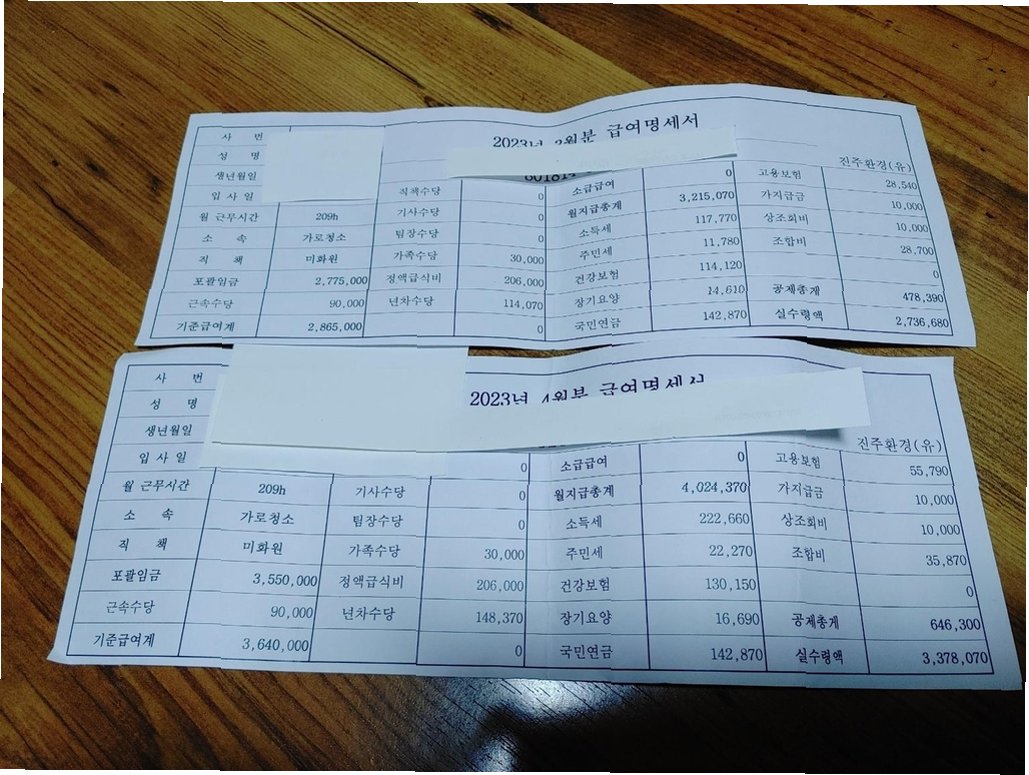 2023년 2월분 급여명세서
진주환경(유)
사 번
성 명
생년월일 직책수당 0 소급급여 0 고용보험 28,540
입 사 일 기사수당 0 월지급총계 3,215,070 가지급금 10,000
월 근무시간 209h 팀장수당 0 소득세 117,770 상조회비 10,000
소 속 가로청소 가족수당 30,000 주민세 11,780 조합비 28,700
직 책 미화원 정액급식비 206,000 건강보험 114,120 0
포괄임금 2,775,000 년차수당 114,070 장기요양 14,610 공제총계 478,390
근속수당 90,000 0 국민연금 142,870 실수령액 2,736,680
기준급여계 2,865,000
2023년 4월분 급여명세서
진주환경(유)
사 번
성 명
생년월일
입 사 일 0 소급급여 0 고용보험 55,790
월 근무시간 209h 기사수당 0 월지급총계 4,024,370 가지급금 10,000
소 속 가로청소 팀장수당 0 소득세 222,660 상조회비 10,000
직 책 미화원 가족수당 30,000 주민세 22,270 조합비 35,870
포괄임금 3,550,000 정액급식비 206,000 건강보험 130,150 0
근속수당 90,000 년차수당 148,370 장기요양 16,690 공제총계 646,300
기준급여계 3,640,000 0 국민연금 142,870 실수령액 3,378,070